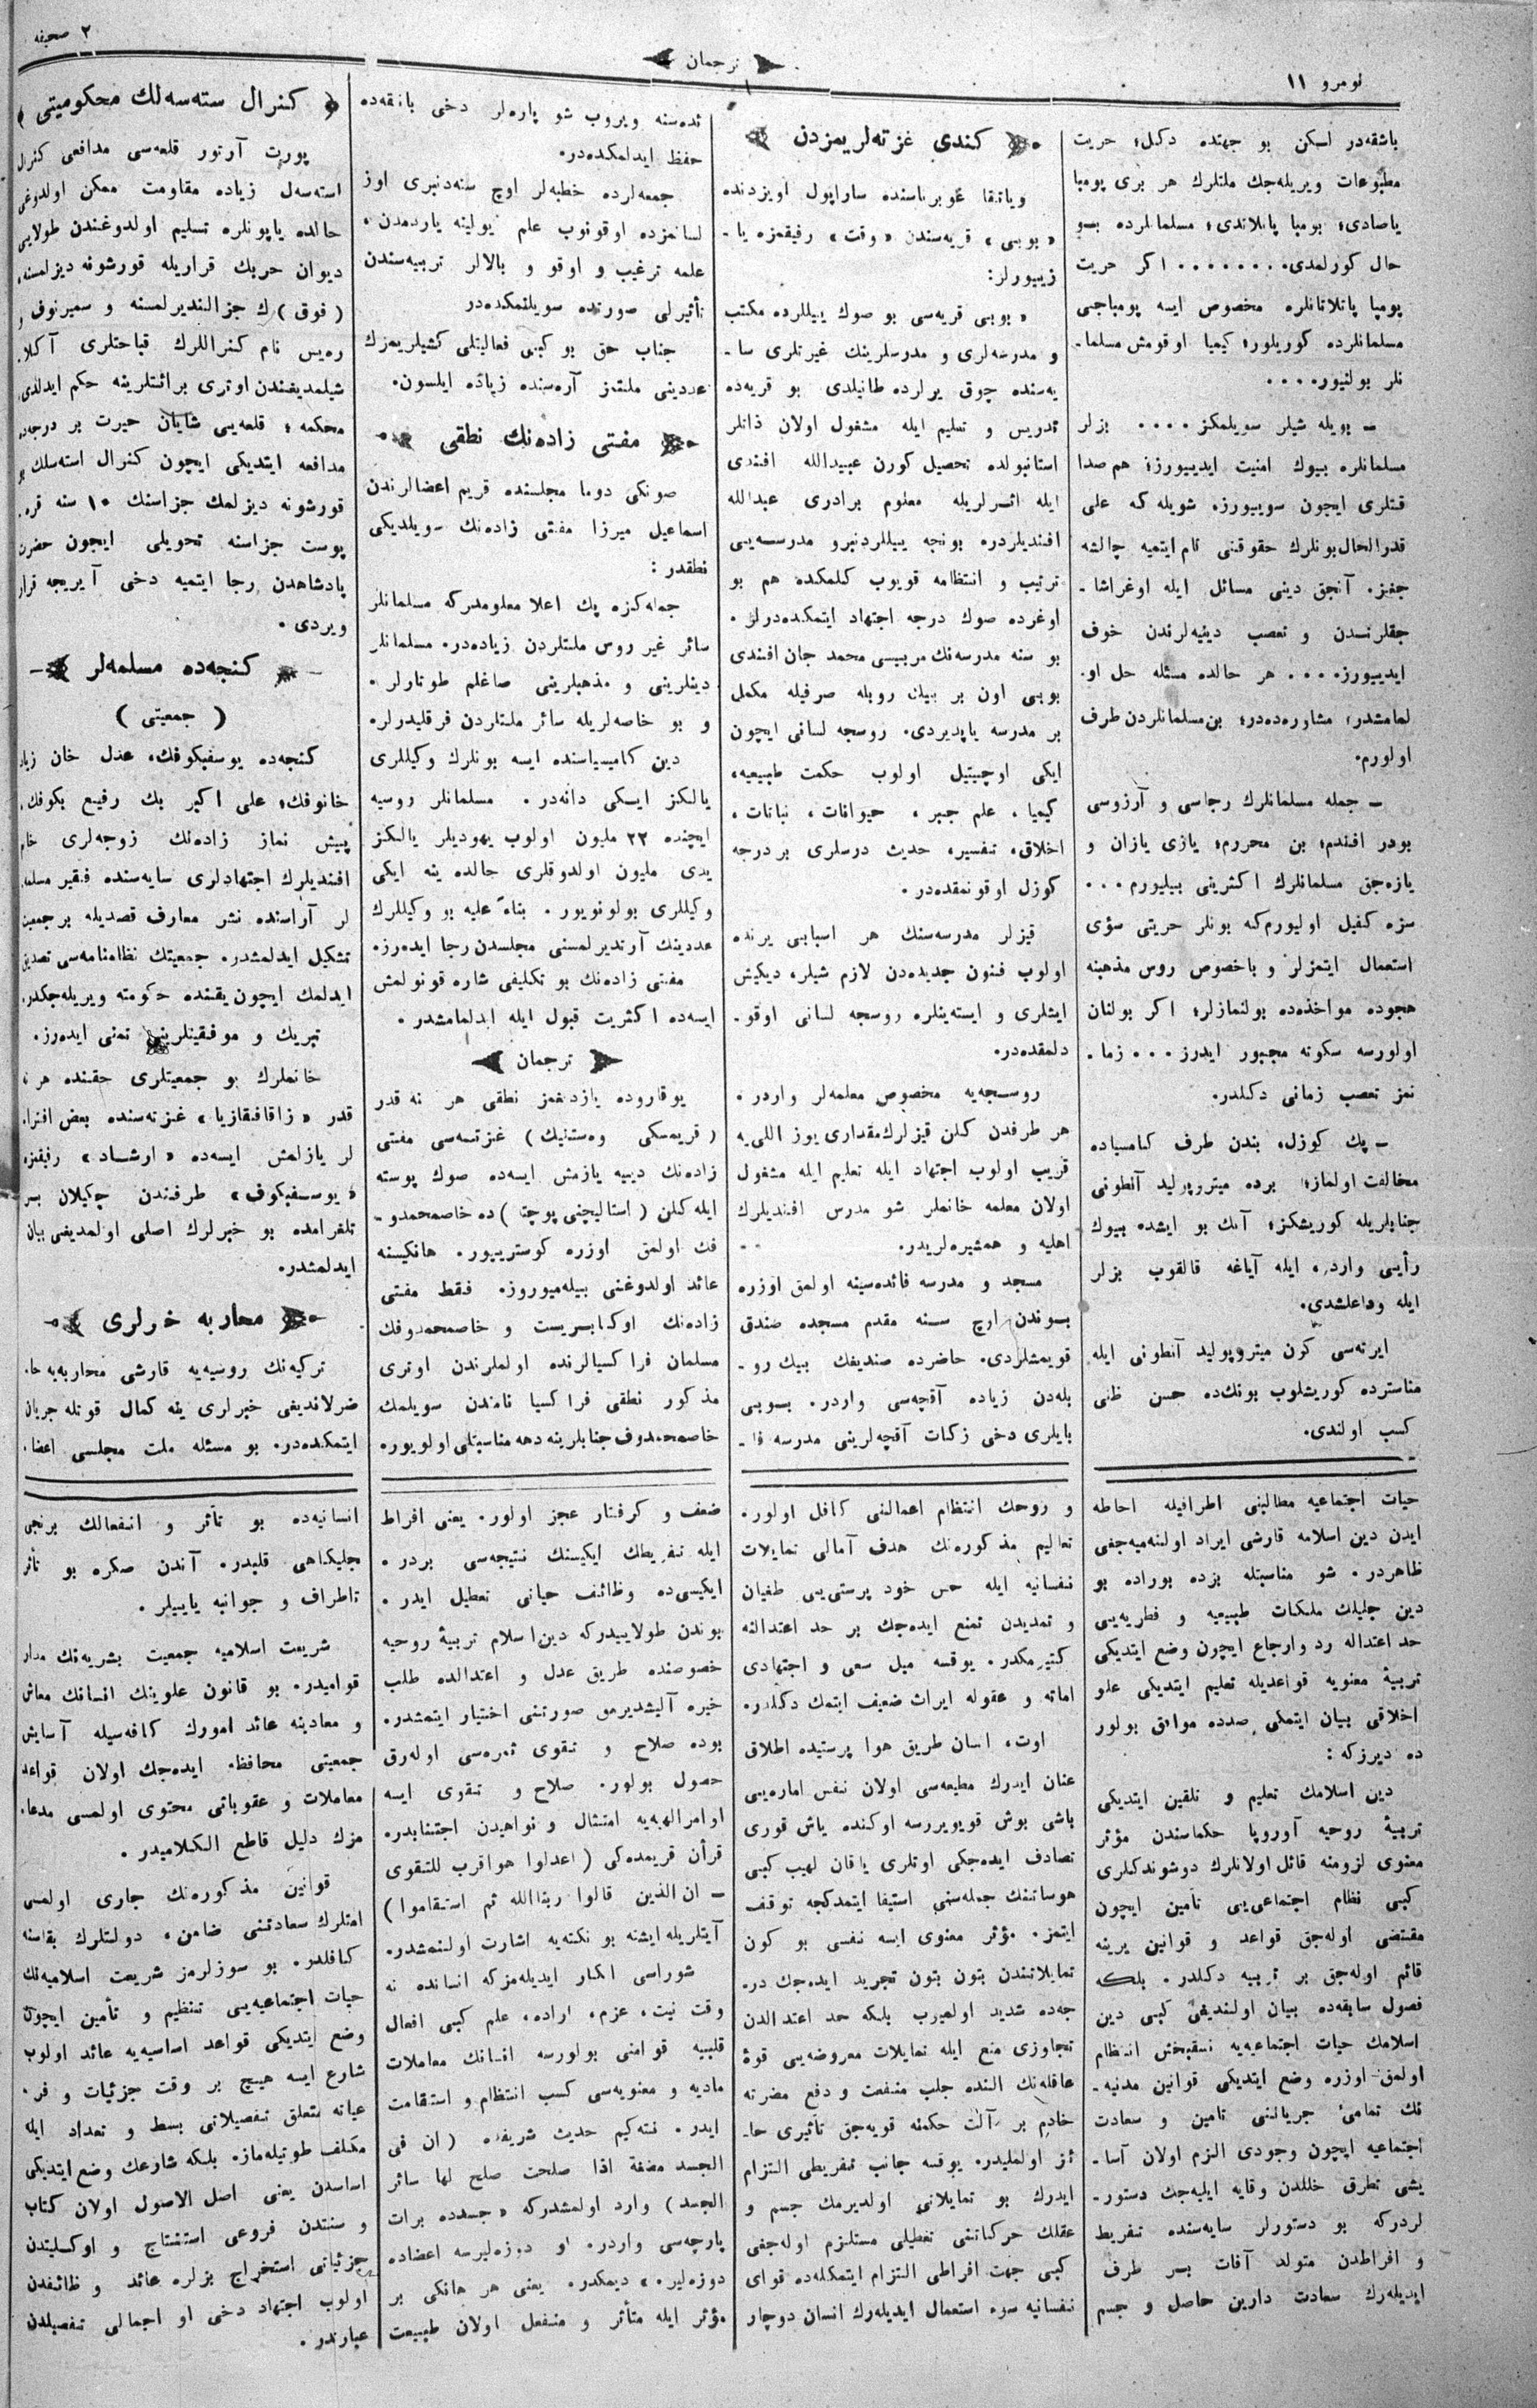 نومرو ١١
ترجمان
٢ صحیفه
باشقه‌در لسکن بو جهتده دکل؛ حریت
مطبوعات ویریله‌جك ملتلرك هر بری بومبا
یاصادی؛ بومبا پاتلاندی؛ مسلمانلرده بسو
حال کورلمدی........ اکر حریت
بومبا پاتلاتانلره مخصوص ایسه بومباجی
مسلمانلرده کوریلور؛ کیمیا اوقومش مسلما-
نلر بولنیور....
– بویله شیلر سویلمکز.... بزلر
مسلمانلره بیوك امنیت ایدییورز؛ هم صدا
قتلری ایچون سوییورز. شویله که علی
قدرالحال بونلرك حقوقنی تام ایتمیه چالشه
جغز. آنجق دینی مسائل ایله اوغراشا-
جقلرنسدن و تعصب دینیه‌لرندن خوف
ایدییورز.... هر حالده مسئله حل او.
لمامشدر؛ مشاوره‌ده‌در؛ بن مسلمانلردن طرف
اولورم.
– جمله مسلمانلرك رجاسی و آرزوسی
بودر افندم؛ بن محررم؛ یازی یازان و
یازه‌جق مسلمانلرك اکثرینی بیلیورم...
سزه کفیل اولیورم‌که بونلر حریتی سؤی
استعمال ایتمزلر و باخصوص روس مذهبنه
هجوده مواخذه‌ده بولنمازلر؛ اکر بولنان
اولورسه سکوته مجبور ایدرز... زما.
نمز تعصب زمانی دکلدر.
– پك کوزل، بندن طرف کامسیاده
مخالفت اولماز؛ برده میتروپولید آنطونی
جنابلریله کوریشکز؛ آنك بو ایشده بیوك
رأیی وارد، ایله آیاغه قالقوب بزلر
ایله وداعلشدی.
ایرته‌سی کون میتروپولید آنطونی ایله
مناسترده کوریشلوب بونك‌ده حسن ظنی
کسب اولندی.
کندی غزته‌لریمزدن
ویاتقا غوبرناسنده ساراپول اویزدنده
« بوبی » قریه‌سندن « وقت » رفیقمزه یا-
زییورلر:
« بوبی قریه‌سی بو صوك ییللرده مکتب
و مدرسه‌لری و مدرسلرینك غیرتلری سا-
یه‌سنده چوق یرلرده طانیلدی بو قریه‌ده
تدریس و تعلیم ایله مشغول اولان ذاتلر
استانبولده تحصیل کورن عبیدالله افندی
ایله اثرلریله معلوم برادری عبدالله
افندیلردره بونجه ییللردنبرو مدرسه‌یی
ترتیب و انتظامه قویوب کلمکده هم بو
اوغرده صوك درجه اجتهاد ایتمکده‌درلر.
بو سنه مدرسه‌نك مربیسی محمد جان افندی
بوبی اون بر بیك روبله صرفیله مکمل
بر مدرسه یاپدیردی. روسجه لسانی ایچون
ایکی اوچیتیل اولوب حکمت طبیعیه،
کیمیا، علم جبر، حیوانات، نباتات،
اخلاق، تفسیر، حدیث درسلری بر درجه
کوزل اوقونمقده‌در.
قیزلر مدرسه‌سنك هر اسبابی یرنده
اولوب فنون جدیده‌دن لازم شیلر، دیکیش
ایشلری و ایسته‌ینلره روسجه لسانی اوقو-
دلمقده‌در.
روسجه‌یه مخصوص معلمه‌لر واردر.
هر طرفدن کلن قیزلرك مقداری یوز اللی‌یه
قریب اولوب اجتهاد ایله تعلیم ایله مشغول
اولان معلمه خانملر شو مدرس افندیلرك
اهلیه و همشیره‌لریدر.
مسجد و مدرسه فائده‌سینه اولمق اوزره
بوندن اوچ سنه مقدم مسجده صندق
قویمشلردی. حاضرده صندیقك بیك رو-
بله‌دن زیاده آقچه‌سی واردر. بوبی
بایلری دخی زکات آقچه‌لرینی مدرسه فا-
ئده‌سنه ویروب شو پاره‌لر دخی بانقه‌ده
حفظ ایدلمکده‌در.
جمعه‌لرده خطبه‌لر اوچ سنه‌دنبری اوز
لسانمزده اوقونوب علم یولینه یاردمدن،
علمه ترغیب و اوقو و بالالر تربیه‌سندن
تأثیرلی صورتده سویلنمکده‌در
جناب حق بو کبی فعالیتلی کشیلریمزك
عددینی ملتمز آره‌سنده زیاده ایلسون.
مفتی زاده‌نك نطقی
صونکی دوما مجلسنده قریم اعضالرندن
اسماعیل میرزا مفتی زاده‌نك سویلدیکی
نطقدر:
جمله‌کزه پك اعلا معلومدرکه مسلمانلر
سائر غیر روس ملتلردن زیاده‌در. مسلمانلر
دینلرینی و مذهبلرینی صاغلم طوتارلر.
و بو خاصه‌لریله سائر ملتلردن فرقلیدرلر.
دین کامیسیاسنده ایسه بونلرك وکیللری
یالکز ایکی دانه‌در. مسلمانلر روسیه
ایچنده ٢٢ ملیون اولوب یهودیلر یالکز
یدی ملیون اولدوقلری حالده ینه ایکی
وکیللری بولونویور. بناءً علیه بو وکیللرك
عددینك آرتدیرلمسنی مجلسدن رجا ایده‌رز.
مفتی زاده‌نك بو تکلیفی شاره قونولمش
ایسه‌ده اکثریت قبول ایله ایدلمامشدر.
ترجمان
یوقاروده یازدیغمز نطقی هر نه قدر
(قریمسکی وه‌ستنیك) غزته‌سی مفتی
زاده‌نك دییه یازمش ایسه‌ده صوك پوسته
ایله کلن (استالیچنی پوچتا) ده خاصمحمدو-
فك اولمق اوزره کوستریبور. هانکیسنه
عائد اولدوغنی بیله‌میوروز. فقط مفتی
زاده‌نك اوکتابریست و خاصمحمدوفك
مسلمان فراکسیالرنده اولملرندن اوتری
مذکور نطقی فراکسیا نامندن سویلمك
خاصمحمدوف جنابلرینه دهه مناسبتلی اولویور.
کنرال سته‌سه‌لك محکومیتی
پورت آرتور قلعه‌سی مدافعی کنرال
استه‌سل زیاده مقاومت ممکن اولدوغی
حالده یاپونلره تسلیم اولدوغندن طولایی
دیوان حربك قراریله قورشونه دیزلمسنه،
(فوق) ك جزالندیرلمسنه و سمیرنوف و
ره‌یس نام کنراللرك قباحتلری آکلا.
شیلمدیغندن اوتری برائتلرینه حکم ایدلدی.
محکمه؛ قلعه‌یی شایان حیرت بر درجه‌ده
مدافعه ایتدیکی ایچون کنرال استه‌سلك
قورشونه دیزلمك جزاسنك ١٠ سنه قره
پوست جزاسنه تحویلی ایچون حضرت
پادشاهدن رجا ایتمیه دخی آیریجه قرار
ویردی.
کنجه‌ده مسلمه‌لر
(جمعیتی)
کنجه‌ده یوسفبکوفك، عدل خان زیاد
خانوفك، علی اکبر بك رفیع بکوفك،
پیش نماز زاده‌نك زوجه‌لری خانم
افندیلرك اجتهادلری سایه‌سنده فقیر مسلمه
لر آراسنده نشر معارف قصدیله بر جمعیت
تشکیل ایدلمشدر. جمعیتك نظامنامه‌سی تصدیق
ایدلمك ایچون یقینده حکومته ویریله‌جکدر.
تبریك و موفقیتلرینی تمنی ایده‌رز.
خانملرك بو جمعیتلری حقنده هر نه
قدر « زاقافقازیا » غزته‌سنده بعض افترا.
لر یازلمش ایسه‌ده « ارشاد » رفیقمزه
« یوسفبکوف » طرفندن چکیلان بر
تلغرامده بو خبرلرك اصلی اولمدیغی بیان
ایدلمشدر.
محاربه خبرلری
ترکیه‌نك روسیه‌یه قارشی محاربه‌یه حا.
ضرلاندیغی خبرلری ینه کمال قوتله جریان
ایتمکده‌در. بو مسئله ملت مجلسی اعضا.
حیات اجتماعیه مطالبنی اطرافیله احاطه
ایدن دین اسلامه قارشی ایراد اولنه‌میه‌جغی
ظاهردر. شو مناسبتله بزده بوراده بو
دین جلیلك ملکات طبیعیه و فطریه‌یی
حد اعتداله رد وارجاع ایچون وضع ایتدیکی
تربیهٔ معنویه قواعدیله تعلیم ایتدیکی علو
اخلاقی بیان ایتمکی صدده موافق بولور
ده دیرزکه:
دین اسلامك تعلیم و تلقین ایتدیکی
تربیهٔ روحیه آوروپا حکماسندن مؤثر
معنوی لزومنه قائل اولانلرك دوشوندکلری
کبی نظام اجتماعی‌یی تامین ایچون
مقتضی اوله‌جق قواعد و قوانین یرینه
قائم اوله‌جق بر تربیه دکلدر. بلکه
فصول سابقه‌ده بیان اولندیغی کبی دین
اسلامك حیات اجتماعیه‌یه نسقبخش انتظام
اولمق اوزره وضع ایتدیکی قوانین مدنیه-
نك تمامیٔ جریاننی تامین و سعادت
اجتماعیه ایچون وجودی الزم اولان آسا-
یشی تطرق خللدن وقایه ایلیه‌جك دستور-
لردرکه بو دستورلر سایه‌سنده تفریط
و افراطدن متولد آفات بر طرف
ایدیله‌رك سعادت دارین حاصل و جسم
و روحك انتظام اعمالنی کافل اولور.
تعالیم مذکوره‌نك هدف آمالی تمایلات
نفسانیه ایله حس خود پرستی‌یی طغیان
و تمدیدن تمنع ایده‌جك بر حد اعتدالنه
کتیرمکدر. یوقسه میل سعی و اجتهادی
اماته و عقوله ایراث ضعیف ایتمك دکلدر.
اوت، انسان طریق هوا پرستیده اطلاق
عنان ایدرك مطیعه‌سی اولان نفس اماره‌یی
باشی بوش قویویررسه اوکنده یاش قوری
تصادف ایده‌جکی اوتلری یاقان لهیب کبی
هوساتنك جمله‌سنی استیفا ایتمدکجه توقف
ایتمز. مؤثر معنوی ایسه نفسی بو کون
تمایلاتندن بتون بتون تجرید ایده‌جك در.
جه‌ده شدید اولمیوب بلکه حد اعتدالدن
تجاوزی منع ایله تمایلات معروضه‌یی قوهٔ
عاقله‌نك النده جلب منفعت و دفع مضرته
خادم بر آلت حکمنه قویه‌جق تأثیری حا-
ئز اولملیدر. یوقسه جانب تفریطی التزام
ایدرك بو تمایلاتی اولدیرمك جسم و
عقلك حرکاتنی تعطیلی مستلزم اوله‌جغی
کبی جهت افراطی التزام ایتمکله‌ده قوای
نفسانیه سوء استعمال ایدیله‌رك انسان دوچار
ضعف و کرفتار عجز اولور. یعنی افراط
ایله تفریطك ایکیسنك نتیجه‌سی بردر.
ایکیسی‌ده وظائف حیاتی تعطیل ایدر.
بوندن طولاییدرکه دین اسلام تربیهٔ روحیه
خصوصنده طریق عدل و اعتدالده طلب
خیره آلیشدیرمق صورتنی اختیار ایتمشدر.
بوده صلاح و تقوی ثمره‌سی اوله‌رق
حصول بولور. صلاح و تقوی ایسه
اوامر الهیه‌یه امتثال و نواهیدن اجتنابدر.
قرآن کریمده‌کی (اعدلوا هواقرب للتقوی
– ان الذین قالوا ربناالله ثم استقاموا)
آیتلریله ایشته بو نکته‌یه اشارت اولنمشدر.
شوراسی انکار ایدیله‌مزکه انسانده نه
وقت نیت، عزم، اراده، علم کبی افعال
قلبیه قوامنی بولورسه انسانك معاملات
مادیه و معنویه‌سی کسب انتظام و استقامت
ایدر. نته‌کیم حدیث شریفده (ان فی
الجسد مضغة اذا صلحت صلح لها سائر
الجسد) وارد اولمشدرکه « جسدده برات
پارچه‌سی واردر. او دوزه‌لیرسه اعضاده
دوزه‌لیر. » دیمکدر. یعنی هر هانکی بر
مؤثر ایله متأثر و منفعل اولان طبیعت
انسانیه‌ده بو تأثر و انفعالك برنجی
جلیکاهی قلبدر. آندن صکره بو تأثر
تاطراف و جوانبه یاییلر.
شریعت اسلامیه جمعیت بشریه‌نك مدار
قوامیدر. بو قانون علوینك انسانك معاش
و معادینه عائد امورك کافه‌سیله آسایش
جمعیتی محافظه ایده‌جك اولان قواعد
معاملات و عقوباتی محتوی اولمسی مدعا.
مزك دلیل قاطع الکلامیدر.
قوانین مذکوره‌نك جاری اولمسی
امتلرك سعادتنی ضامن، دولتلرك بقاسنه
کافلدر. بو سوزلرمز شریعت اسلامیه‌نك
حیات اجتماعیه‌یی تنظیم و تأمین ایچون
وضع ایتدیکی قواعد اساسیه‌یه عائد اولوب
شارع ایسه هیچ بر وقت جزئیات و فر.
عیاته متعلق تفصیلاتی بسط و تعداد ایله
مکلف طوتیله‌ماز. بلکه شارعك وضع ایتدیکی
اساسدن یعنی اصل الاصول اولان کتاب
و سنتدن فروعی استنتاج و اوکلیتدن
جزئیاتی استخراج بزلره عائد و ظائفدن
اولوب اجتهاد دخی او اجمالی تفصیلدن
عبارتدر.